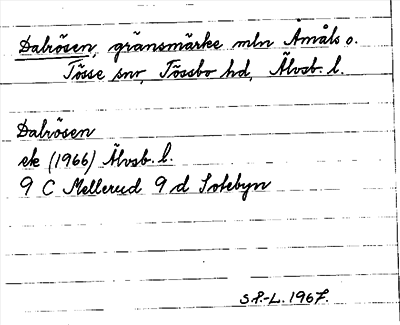 Dalrösen, gränsmärke mln Åmåls o.
Tösse snr, Tössbo hd, Älvsb. l.
Dalrösen
ek (1966) Älvsb. l.
9 C Mellerud 9 d Sotebyn
S P.-L. 1967.